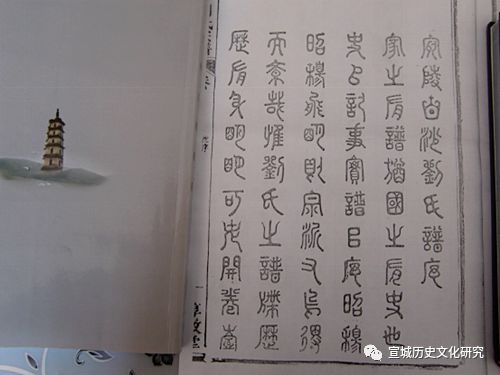 陵劉氏譜序
家之有譜猶國之有史也
史以記事實譜以序昭穆
昭穆既明則宗派又烏得
而紊哉惟劉氏之譜牒歷
歷有明明可考開卷
宣城历史文化研究